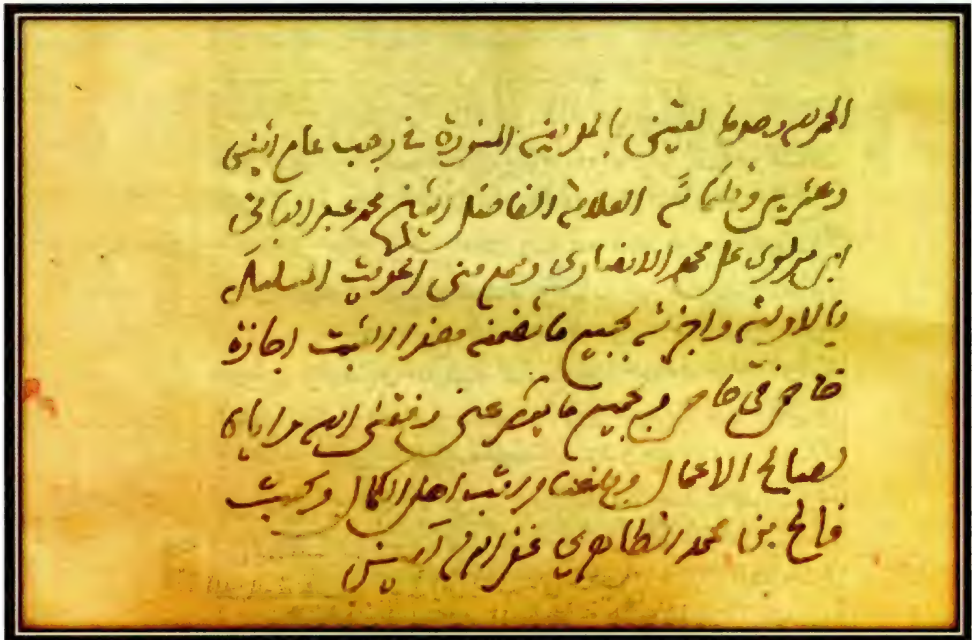 الحمد لله وحده لقيني بالمدينة المنورة في رجب عام اثنين
وعشرين وثلثمائة العلامة الفاضل الشيخ محمد عبد الباقي
ابن مولوي علي محمد الانصاري وسمع مني الحديث المسلسل
بالاولية واجزته بجميع ما تضمنه هذا الثبت اجازة
خاص في خاص وبجميع ما يؤثر عني وفقني الله واياه
لصالح الاعمال ورتب اهل الكمال وكتبه
فالح بن محمد الظاهري غفر الله له آمين